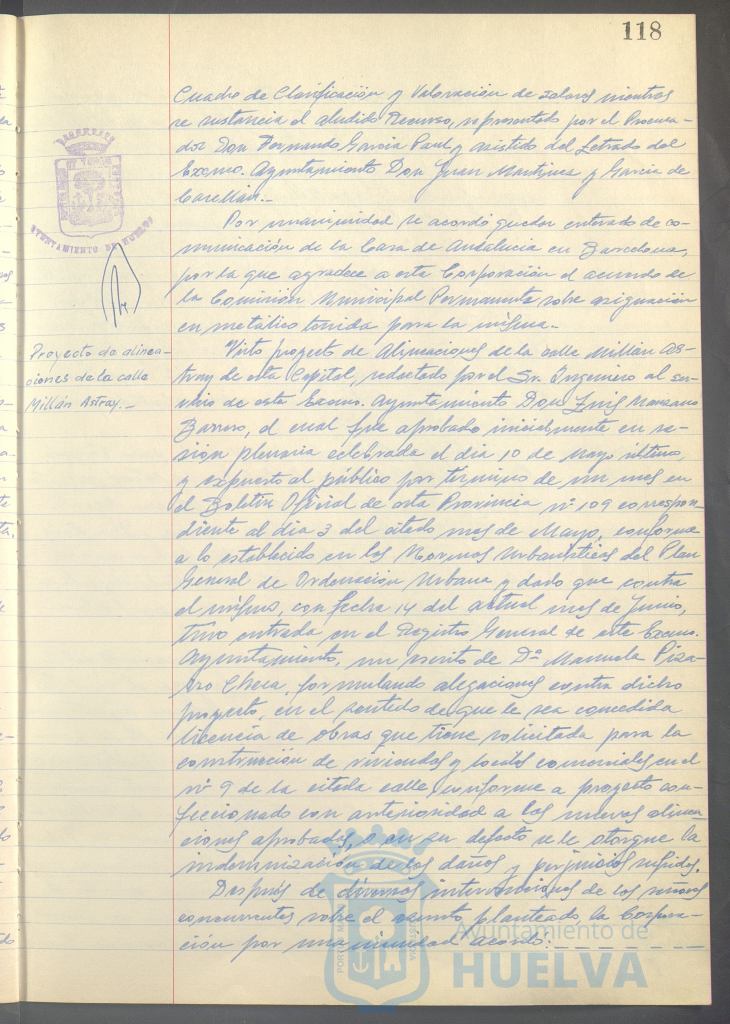 118
Cuadro de Clasificación y Valoración de solares mientras
se sustancia el aludido Recurso, representado por el Procura-
dor Don Fernando García Paul y asistido del Letrado del
Excmo. Ayuntamiento Don Juan Martínez y García de
Casellán._
Por unanimidad se acordó quedar enterado de co-
municación de la Casa de Andalucía en Barcelona,
por la que agradece a esta Corporación el acuerdo de
la Comisión Municipal Permanente sobre asignación
en metálico tenida para la misma._
AYUNTAMIENTO DE HUELVA
Proyecto de alinea-
ciones de la calle
Millán Astray._
Visto proyecto de Alineaciones de la calle Millán As-
tray de esta Capital, redactado por el Sr. Ingeniero al ser-
vicio de este Excmo. Ayuntamiento Don Luis Manzano
Barrero, el cual fue aprobado inicialmente en se-
sión plenaria celebrada el día 10 de Mayo último,
y expuesto al público por término de un mes en
el Boletín Oficial de esta Provincia nº 109 correspon-
diente al día 3 del citado mes de Mayo, conforme
a lo establecido en las Normas Urbanísticas del Plan
General de Ordenación Urbana y dado que contra
el mismo, con fecha 14 del actual mes de Junio,
tuvo entrada en el Registro General de este Excmo.
Ayuntamiento, un escrito de Dª Manuela Piza-
rro Checa, formulando alegaciones contra dicho
proyecto, en el sentido de que le sea concedida
licencia de obras que tiene solicitada para la
construcción de viviendas y locales comerciales en el
nº 9 de la citada calle, conforme a proyecto con-
feccionado con anterioridad a las nuevas alinea
ciones aprobadas, o en su defecto se le otorgue la
indemnización de los daños y perjuicios sufridos.
Después de diversas intervenciones de los señores
concurrentes sobre el asunto planteado, la Corpora-
ción por unanimidad acordó:
Ayuntamiento de
HUELVA